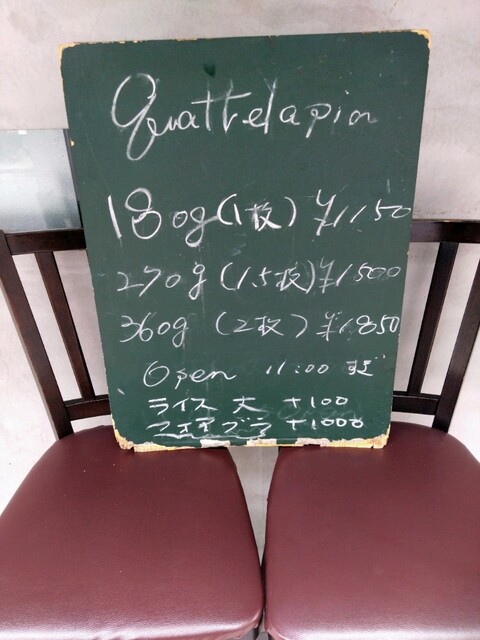 Quattrelapin
180g(1枚) ¥1150
270g (1.5枚) ¥1500
360g (2枚) ¥1850
Open 11:00 まで
ライス 大 +100
フォアグラ +1000